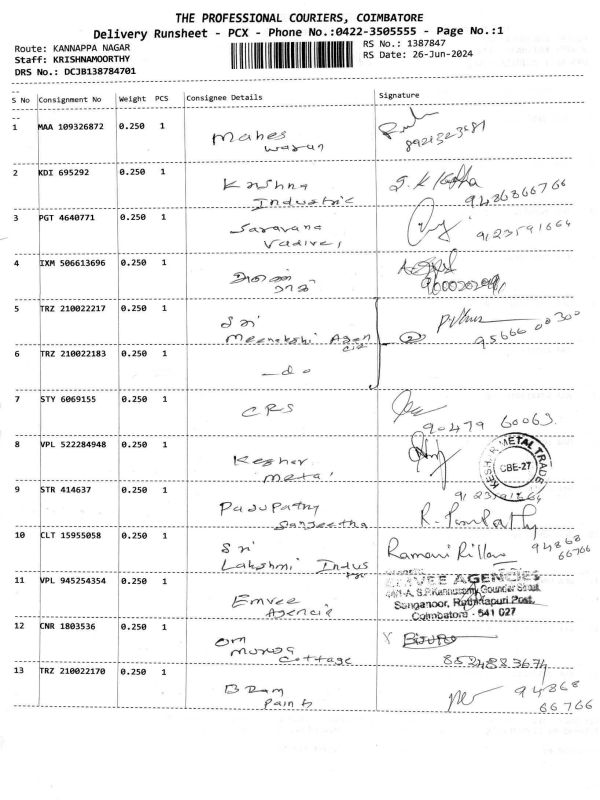 THE PROFESSIONAL COURIERS, COIMBATORE
Delivery Runsheet - PCX - Phone No.:0422-3505555 - Page No.:1
Route: KANNAPPA NAGAR
RS No.: 1387847
Staff: KRISHNAMOORTHY
RS Date: 26-Jun-2024
DRS No.: DCJB138784701
S No Consignment No Weight PCS Consignee Details Signature
1 MAA 109326872 0.250 1 Mahes
2 KDI 695292 0.250 1 Krishna
Industric
9486866766
3 PGT 4640771 0.250 1 Saravana
Vadivel
9123591664
4 IXM 506613696 0.250 1
5 TRZ 210022217 0.250 1 Sri
Meenakshi Agen
cie
95666 00300
6 TRZ 210022183 0.250 1 -do
7 STY 6069155 0.250 1 CRS
90479 60063
8 VPL 522284948 0.250 1 Keshar
metal
KESHAR METAL TRADE
CBE-27
9 STR 414637 0.250 1 Pasupathy
Sangeetha
9123591664
10 CLT 15955058 0.250 1 Sri
Lakshmi Indus
Ramani
94868
66766
11 VPL 945254354 0.250 1 Emvee
Agencie
EMVEE AGENCIES
Sanganoor, Rathinapuri Post,
Coimbatore - 641 027
12 CNR 1803536 0.250 1 Om
Muruga
Cottage
8524883674
13 TRZ 210022170 0.250 1 B Ram
Paint
94868
66766